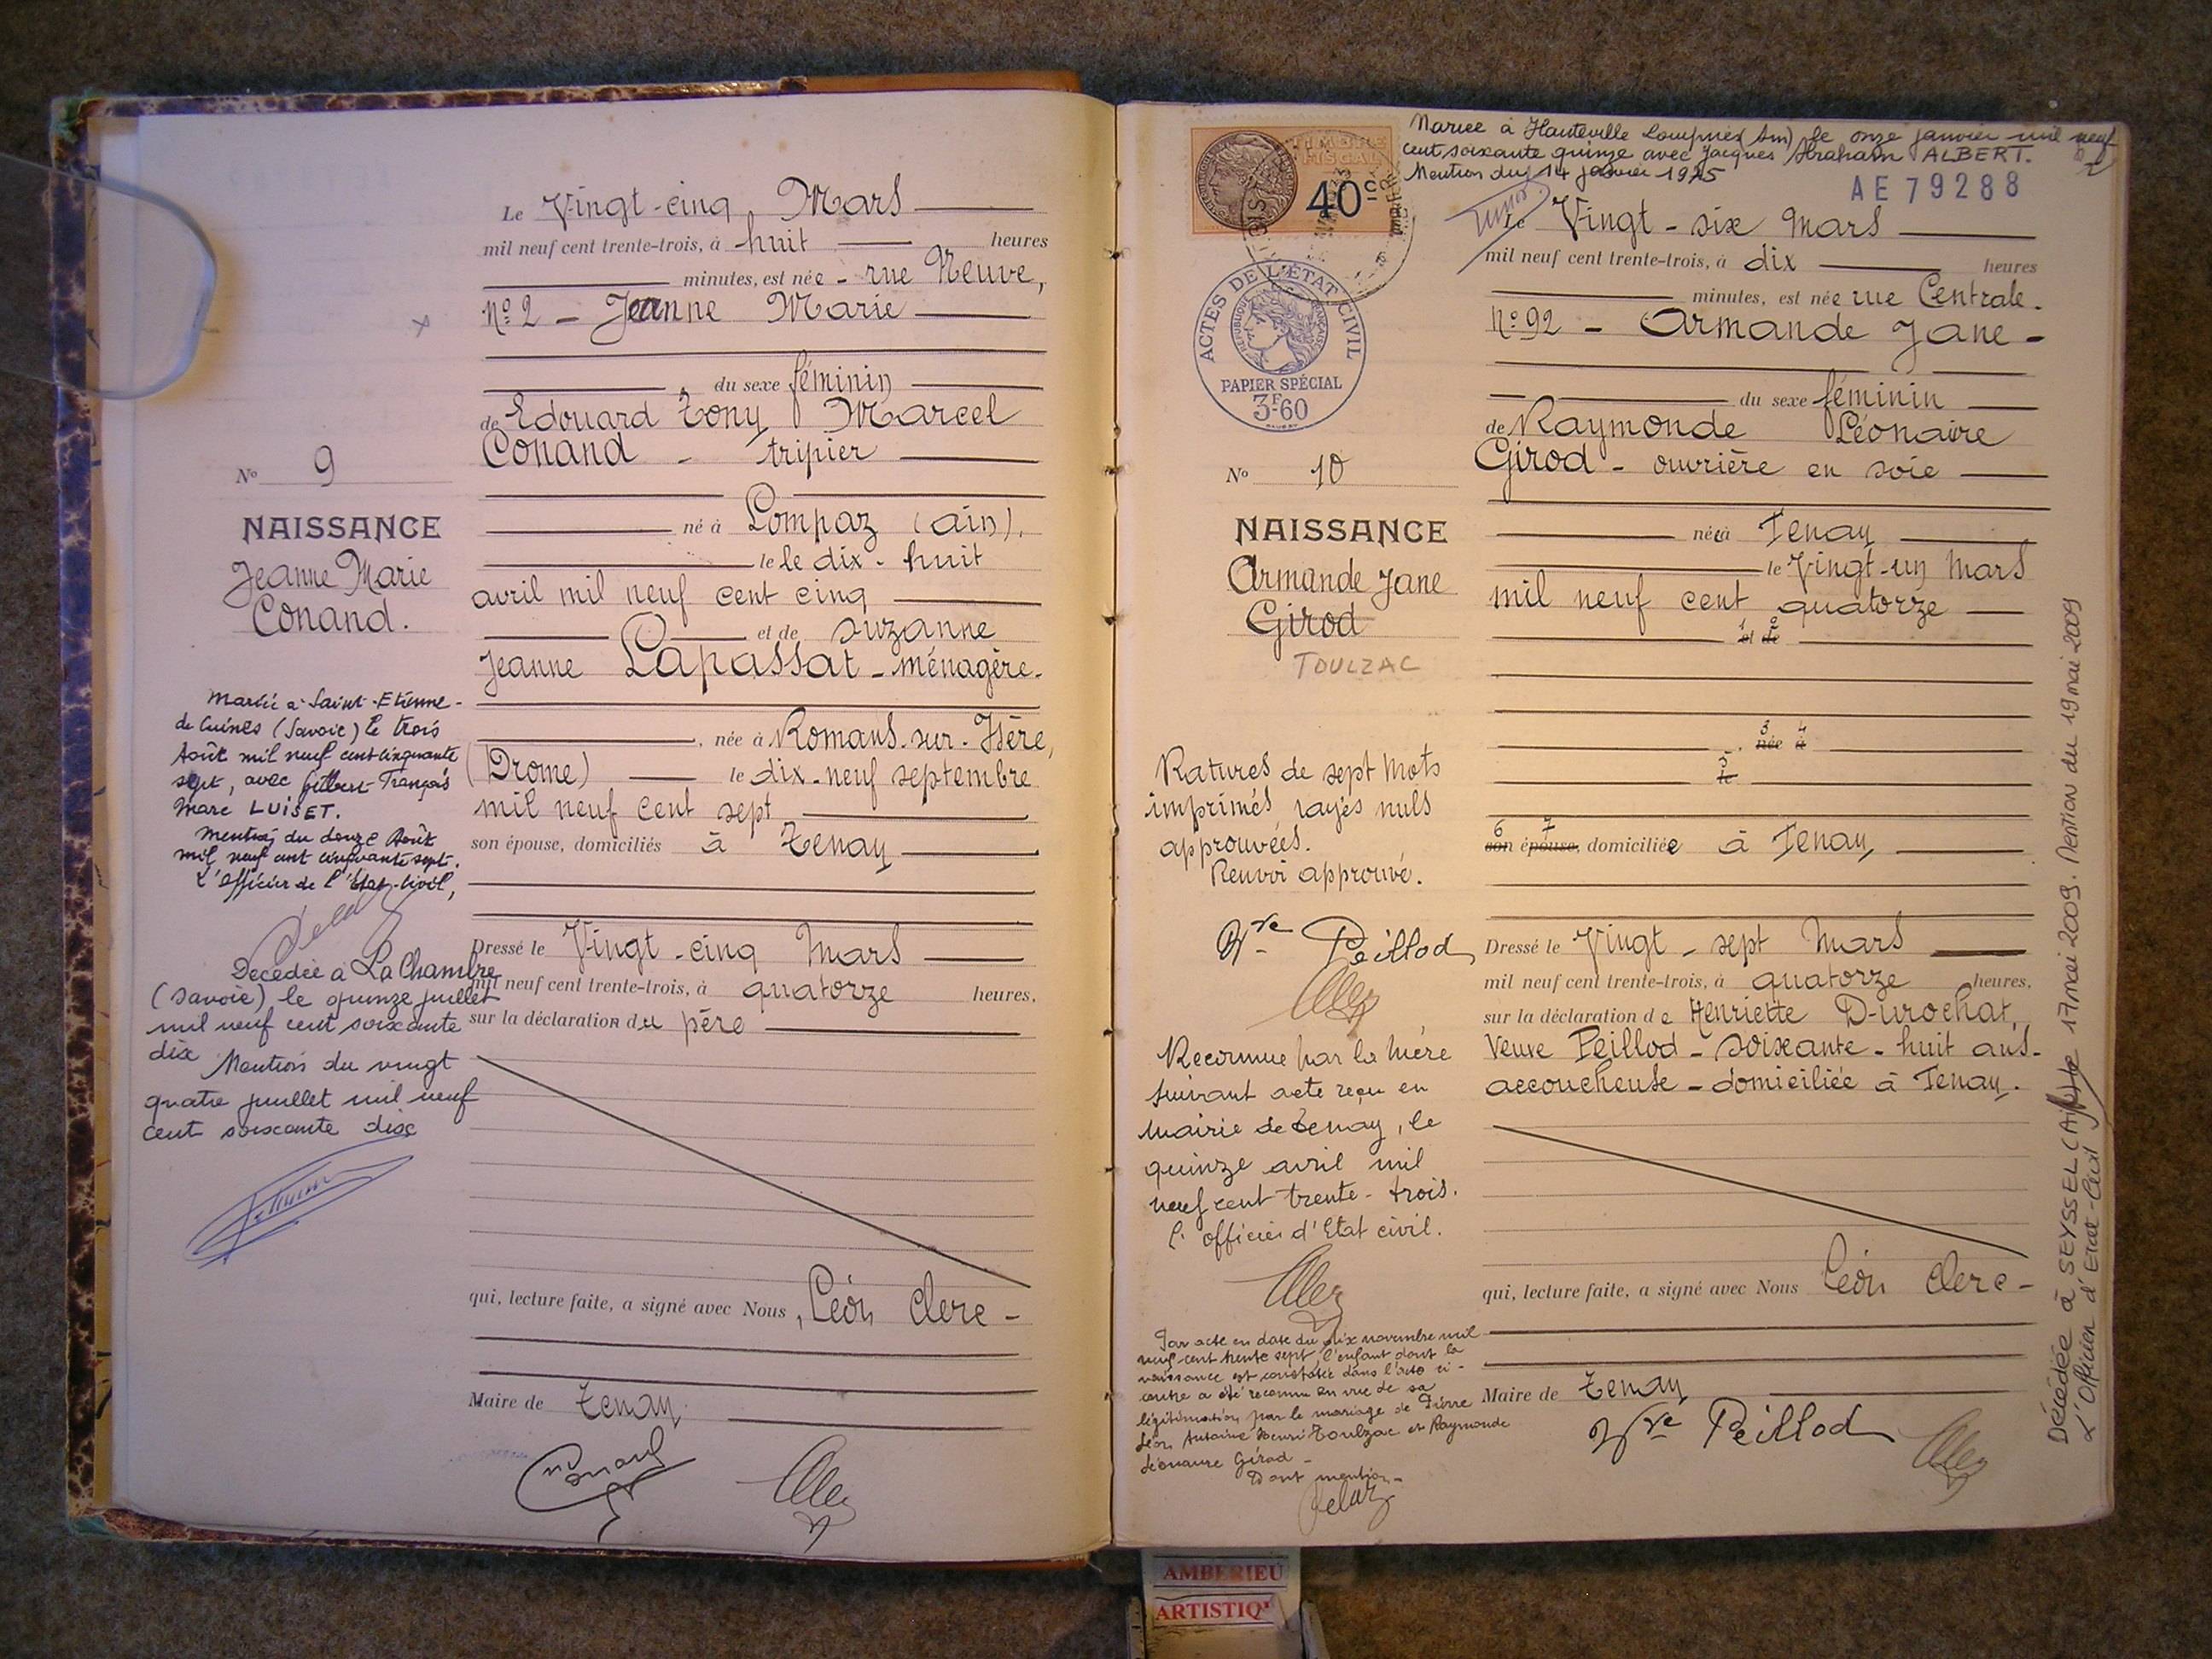 Le Vingt-cinq Mars
mil neuf cent trente-trois, à huit heures
minutes, est née - rue Neuve,
N° 2 - Jeanne Marie
du sexe féminin
de Edouard Tony Marcel
Conand - tripier
né à Lompaz (ain).
le le dix-huit
avril mil neuf cent cinq
et de Suzanne
Jeanne Lapassat - ménagère.
, née à Romans-sur-Isère,
(Drome) le dix-neuf septembre
mil neuf cent sept
son épouse, domiciliés à Tenay
Dressé le Vingt-cinq Mars
mil neuf cent trente-trois, à quatorze heures,
sur la déclaration du père
qui, lecture faite, a signé avec Nous, Léon Clerc -
Maire de Tenay
Conand
N° 9
NAISSANCE
Jeanne Marie
Conand.
Mariée à Saint-Etienne-
de Cuines (Savoie) le trois
Août mil neuf cent cinquante
sept, avec Gilbert François
Marc LUISET.
Mention du douze Août
mil neuf cent cinquante sept.
L'officier de l'Etat-Civil,
Décédée à La Chambre
(Savoie) le quinze juillet
mil neuf cent soixante
dix Mention du vingt
quatre juillet mil neuf
cent soixante dix
Mariée à Hauteville Lompnes (Ain) le onze janvier mil neuf
cent soixante quinze avec Jacques Abraham ALBERT.
Mention du 14 janvier 1975
AE 79288
TIMBRE
FISCAL
40c
ACTES DE L'ÉTAT CIVIL
RÉPUBLIQUE FRANÇAISE
PAPIER SPÉCIAL
3F60
Le Vingt-six Mars
mil neuf cent trente-trois, à dix heures
minutes, est née rue Centrale.
N° 92 - Armande Jane -
du sexe féminin
de Raymonde Léonaire
Girod - ouvrière en soie
née à Tenay
le Vingt-un Mars
mil neuf cent quatorze
1 2
et de
3 4
, née à
5
le
6 7
son épouse, domiciliée à Tenay
Dressé le Vingt-sept Mars
mil neuf cent trente-trois, à quatorze heures,
sur la déclaration de Henriette Durochat,
Veuve Peillod - soixante-huit ans -
accoucheuse - domiciliée à Tenay.
qui, lecture faite, a signé avec Nous Léon Clerc -
Maire de Tenay
Vve Peillod
N° 10
NAISSANCE
Armande Jane
Girod
TOULZAC
Ratures de sept mots
imprimés, rayés nuls
approuvées.
Renvoi approuvé.
Vve Peillod
Reconnue par la mère
suivant acte reçu en
mairie de Tenay, le
quinze avril mil
neuf cent trente-trois.
L'officier d'Etat civil.
Par acte en date du dix novembre mil
neuf cent trente sept, l'enfant dont la
naissance est constatée dans l'acte ci-
contre a été reconnu en vue de sa
légitimation par le mariage de Pierre
Léon Antoine Henri Toulzac et Raymonde
Léonaire Girod -
Dont mention -
Décédée à SEYSSEL (Ain) le 17 mai 2009. Mention du 19 mai 2009
L'Officier d'Etat-Civil
AMBERIEU
ARTISTIQ